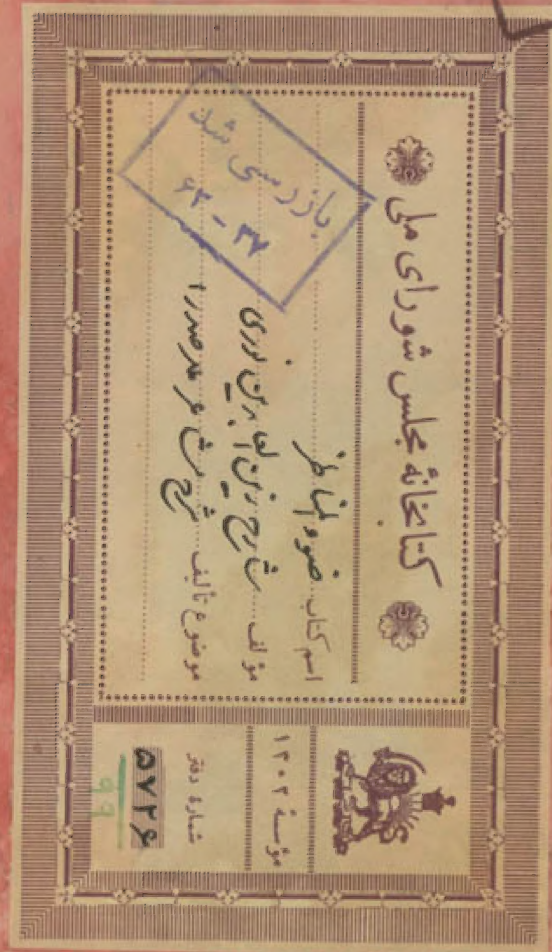 کتابخانهٔ مجلس شورای ملی
اسم کتاب ضوء المناظر
مؤلف شارح زین العابدین نوری
موضوع تألیف شرح مشاعر ملاصدرا
بازرسی شد
۳۷ - ۶۳
مؤسسهٔ ۱۳۰۲
شمارهٔ دفتر
۵۷۲۶
۹۹